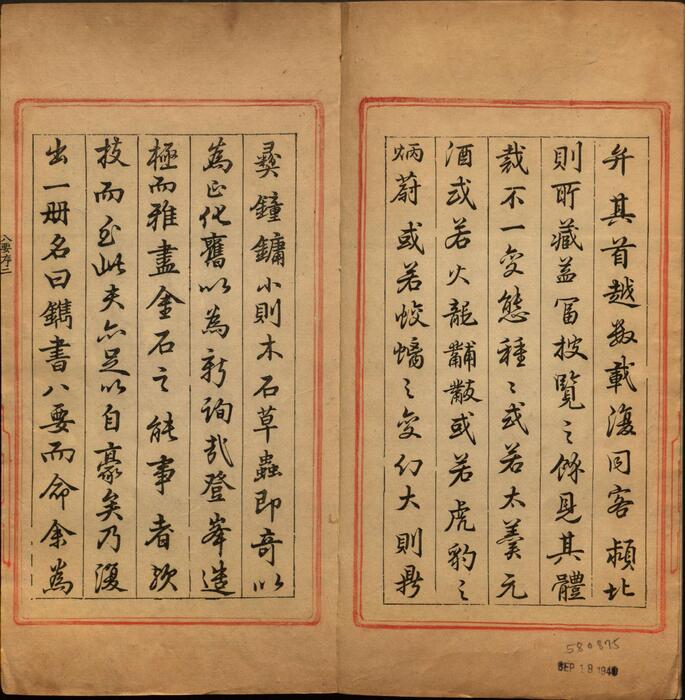 弁其首越数載復同客蘋北
則所藏益富披覽之餘見其體
裁不一变態種〻或若太羹元
酒或若火龍黼黻或若虎豹之
炳蔚或若蛟螭之变幻大則鼎
彝鐘鏞小則木石草蟲即奇以
為正化舊以為新詢哉登峯造
極而雅盡金石之能事者歟
技而至此夫亦足以自豪矣乃復
出一册名曰鐫書八要而命余為
八要序二
580875
SEP 18 1940